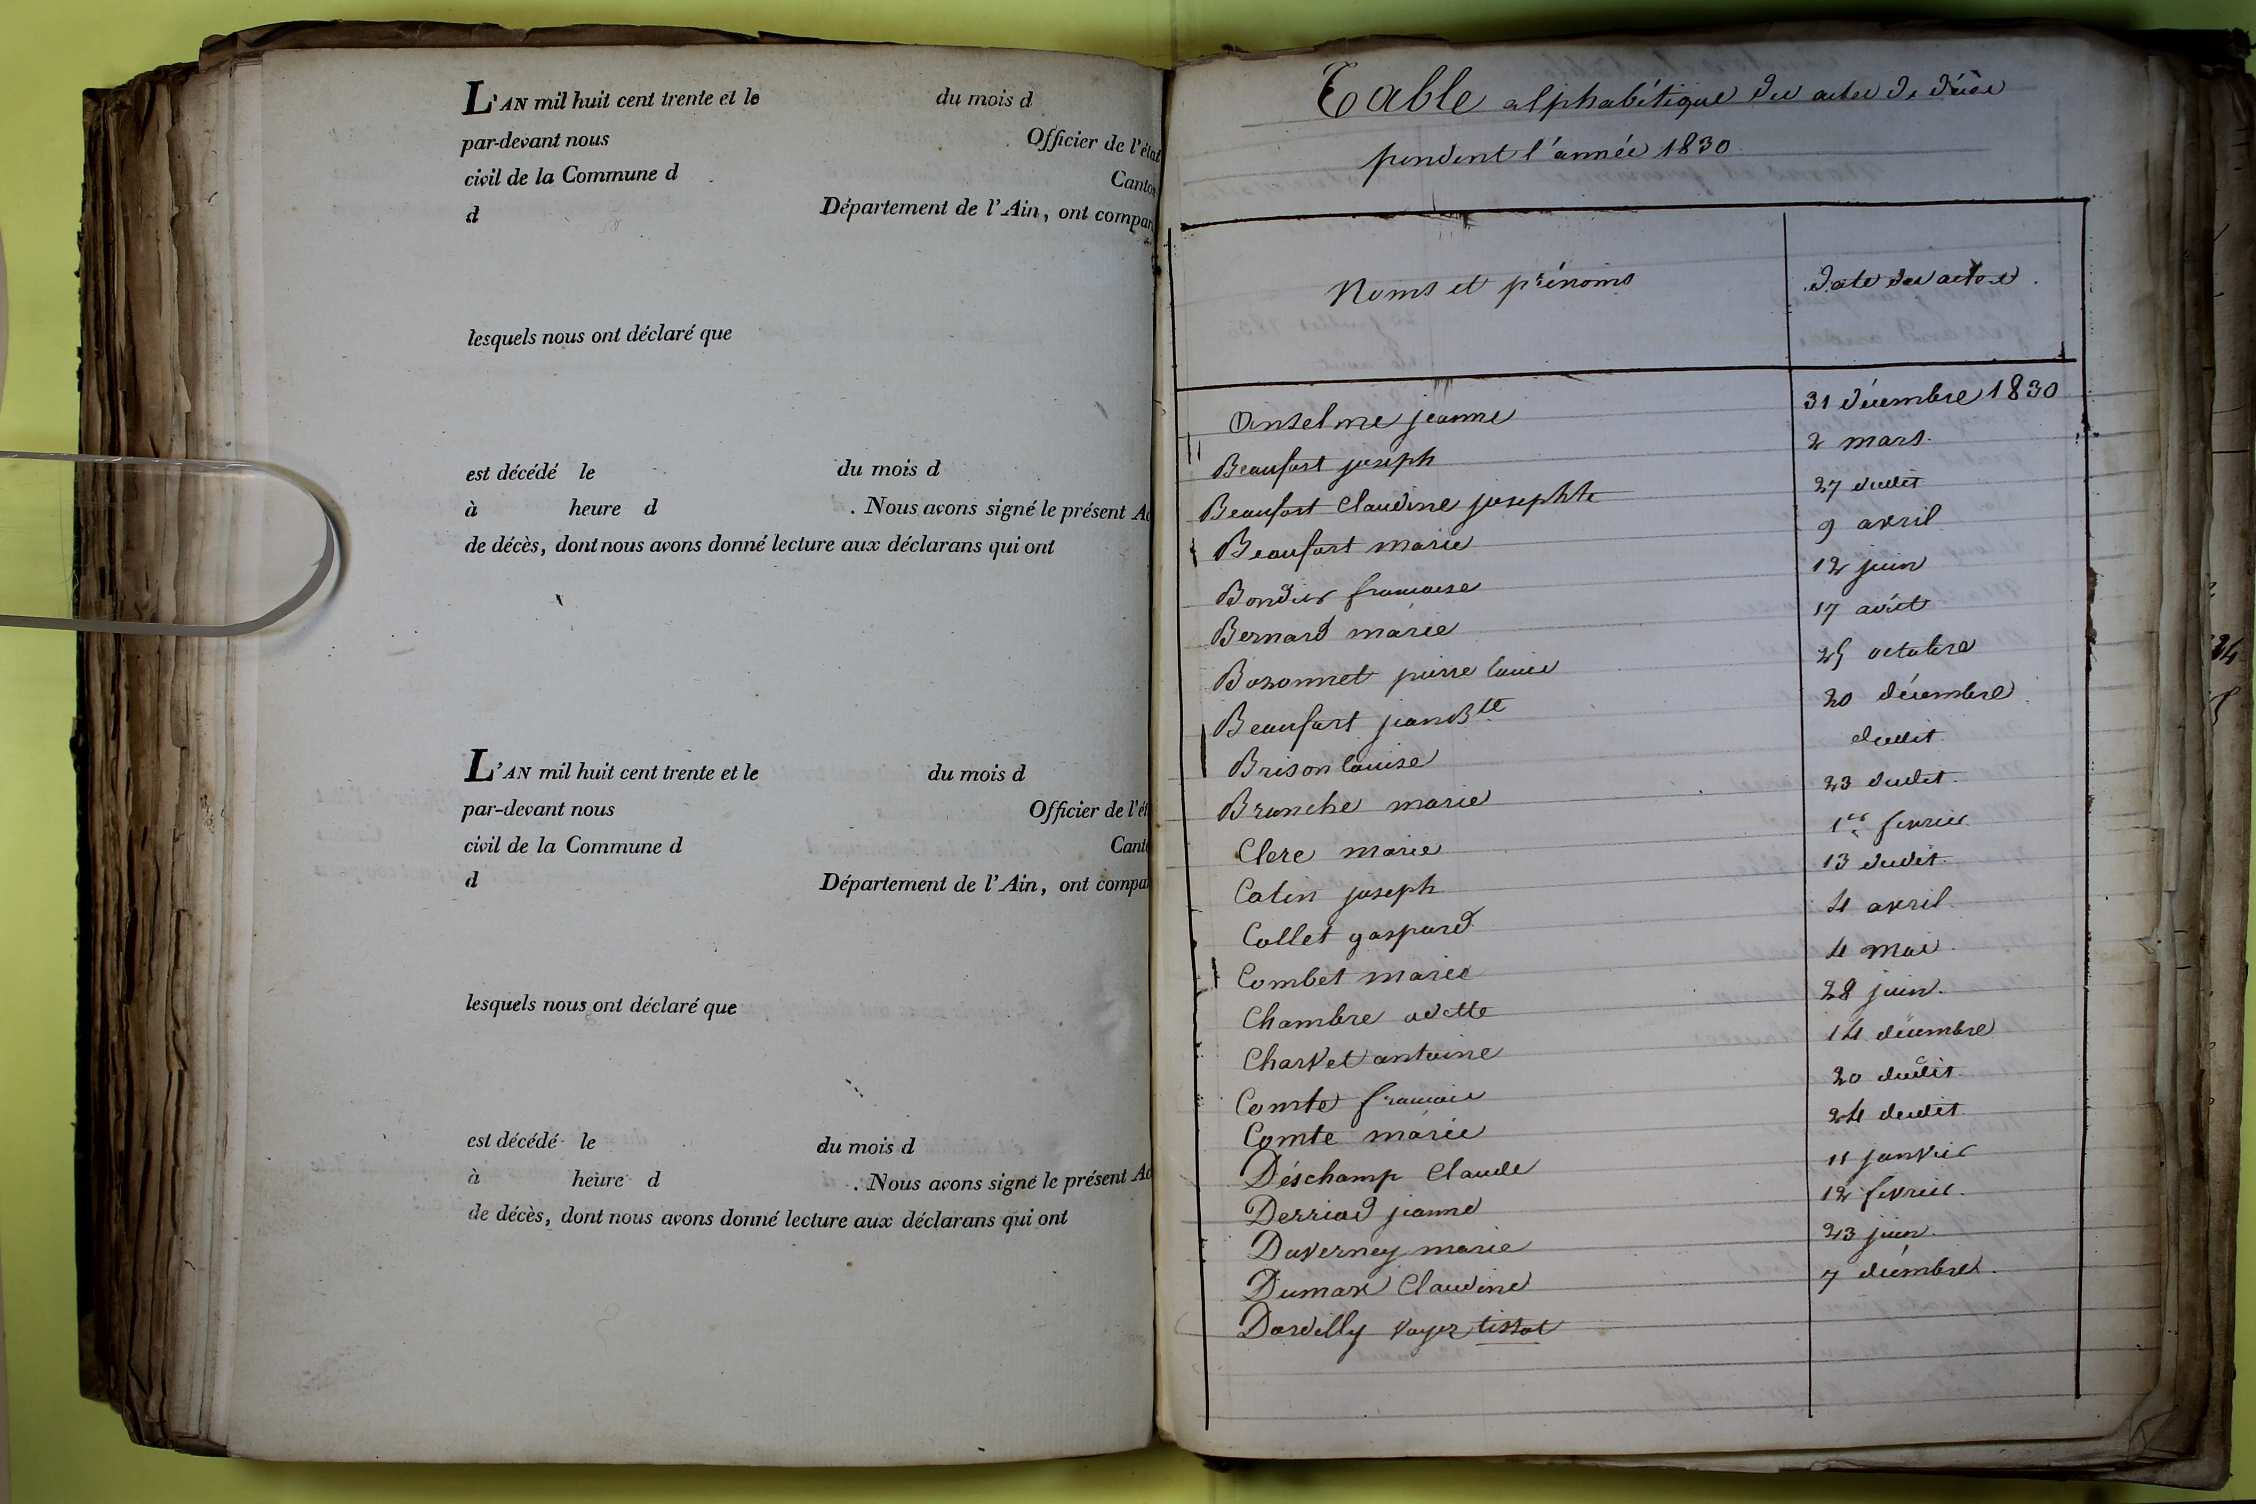 L'AN mil huit cent trente et le du mois d
par-devant nous Officier de l'état
civil de la Commune d Canton
d Département de l'Ain, ont compar
lesquels nous ont déclaré que
est décédé le du mois d
à heure d . Nous avons signé le présent Ac
de décès, dont nous avons donné lecture aux déclarans qui ont
L'AN mil huit cent trente et le du mois d
par-devant nous Officier de l'ét
civil de la Commune d Cant
d Département de l'Ain, ont compa
lesquels nous ont déclaré que
est décédé le du mois d
à heure d . Nous avons signé le présent Ac
de décès, dont nous avons donné lecture aux déclarans qui ont
Table alphabétique des actes de décès
pendent l'année 1830
Noms et prénoms date des actes.
Anselme jeanne 31 décembre 1830
Beaufort joseph 2 mars.
Beaufort Claudine josephte 27 dudit
Beaufort marie 9 avril
Bondier francoise 12 juin
Bernard marie 17 aout
Bozonnet pierre louis 25 octobre
Beaufort jean Bte 20 décembre
Brison louise dudit
Brunche marie 23 dudit.
Clerc marie 1er fevrier
Catin joseph 13 dudit.
Collet gaspard 4 avril.
Combet marie 4 mai.
Chambre odette 28 juin.
Charvet antoine 14 décembre
Comte francois 20 dudit.
Comte marie 24 dudit
Déschamp Claude 11 janvier
Derriad jeanne 12 fevrier.
Duverney marie 23 juin.
Dumax Claudine 7 décembre.
Dardilly Voyez tissot